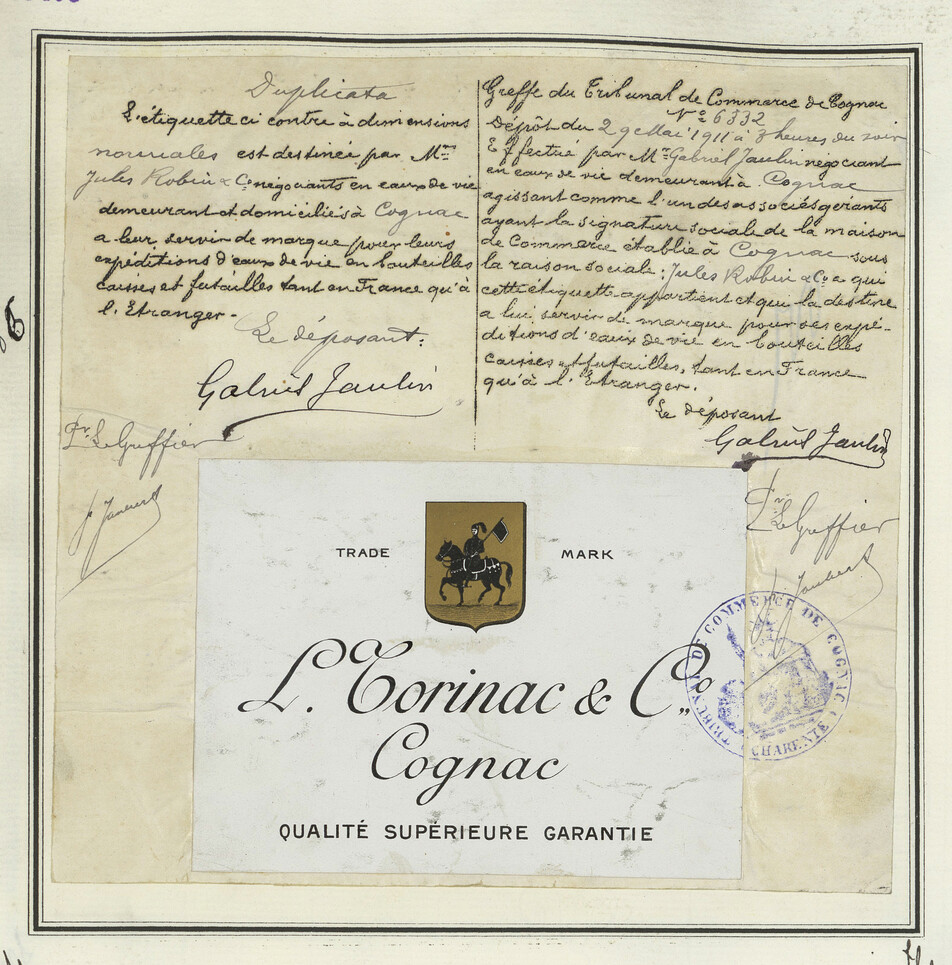 Duplicata
L'étiquette ci contre à dimensions
normales est destinée par Mrs
Jules Robin & Co négociants en eaux de vie
demeurant et domiciliés à Cognac
a leur servir de marque pour leurs
expéditions d'eaux de vie en bouteilles
caisses et futailles tant en France qu'à
l'Etranger.
Le déposant:
Gabriel Jaulin
Pr. Le Greffier
Greffe du Tribunal de Commerce de Cognac
No 6332
Dépôt du 29 Mai 1911 à 3 heures du soir
Effectué par Mr Gabriel Jaulin négociant
en eaux de vie demeurant à Cognac
agissant comme l'un des associés gérants
ayant la signature sociale de la maison
de Commerce établie à Cognac sous
la raison sociale: Jules Robin & Co a qui
cette étiquette appartient et qui la destine
a lui servir de marque pour ses expé-
ditions d'eaux de vie en bouteilles
caisses et futailles, tant en France
qu'à l'Etranger.
Le déposant
Gabriel Jaulin
Pr. Le Greffier
Joubert
TRADE MARK
L. Torinac & Co.
Cognac
QUALITÉ SUPÉRIEURE GARANTIE
TRIBUNAL DE COMMERCE DE COGNAC
CHARENTE